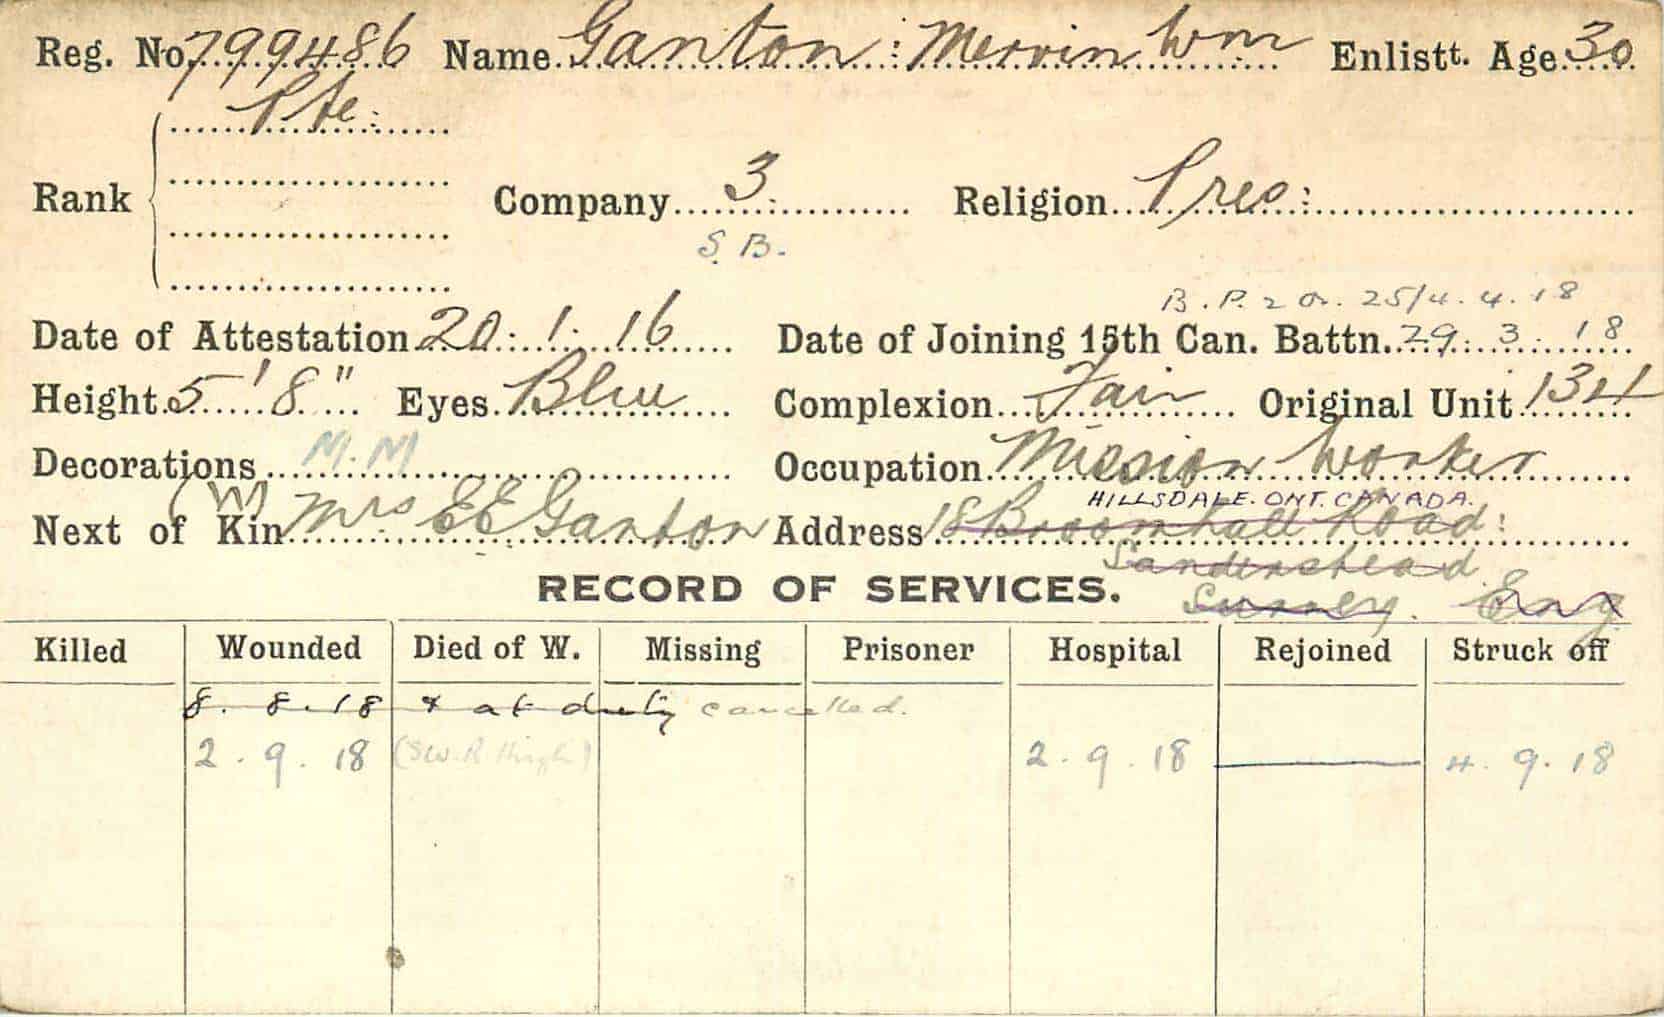 Reg. No. 799486 Name Ganton : Mervin Wm Enlistt. Age 30
Pte.
Rank Company 3 Religion Pres:
S.B.
B.P. 2 Or. 25/4.4.18
Date of Attestation 20.1.16 Date of Joining 15th Can. Battn. 29.3.18
Height 5'8" Eyes Blue Complexion Fair Original Unit 134
Decorations M.M Occupation Mission Worker
(W) HILLSDALE. ONT. CANADA.
Next of Kin Mrs E E Ganton Address 18 Broomhall Road:
Sanderstead
RECORD OF SERVICES. Surrey. Eng
Killed Wounded Died of W. Missing Prisoner Hospital Rejoined Struck off
8.8.18 & at duty cancelled.
2.9.18 (SW. R Thigh) 2.9.18 4.9.18